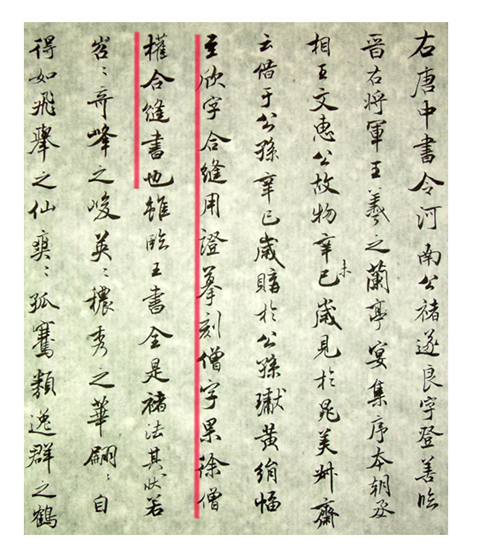 右唐中書令河南公褚遂良字登善臨
晉右將軍王羲之蘭亭宴集序本朝丞
相王文惠公故物辛巳未歲見於晁美叔齋
云借于公孫辛巳歲購於公孫瓛黃絹幅
至欣字合縫用證摹刻僧字果徐僧
權合縫書也雖臨王書全是褚法其狀若
岧〻奇峰之峻英〻穠秀之華翩〻自
得如飛舉之仙爽〻孤騫類逸群之鶴